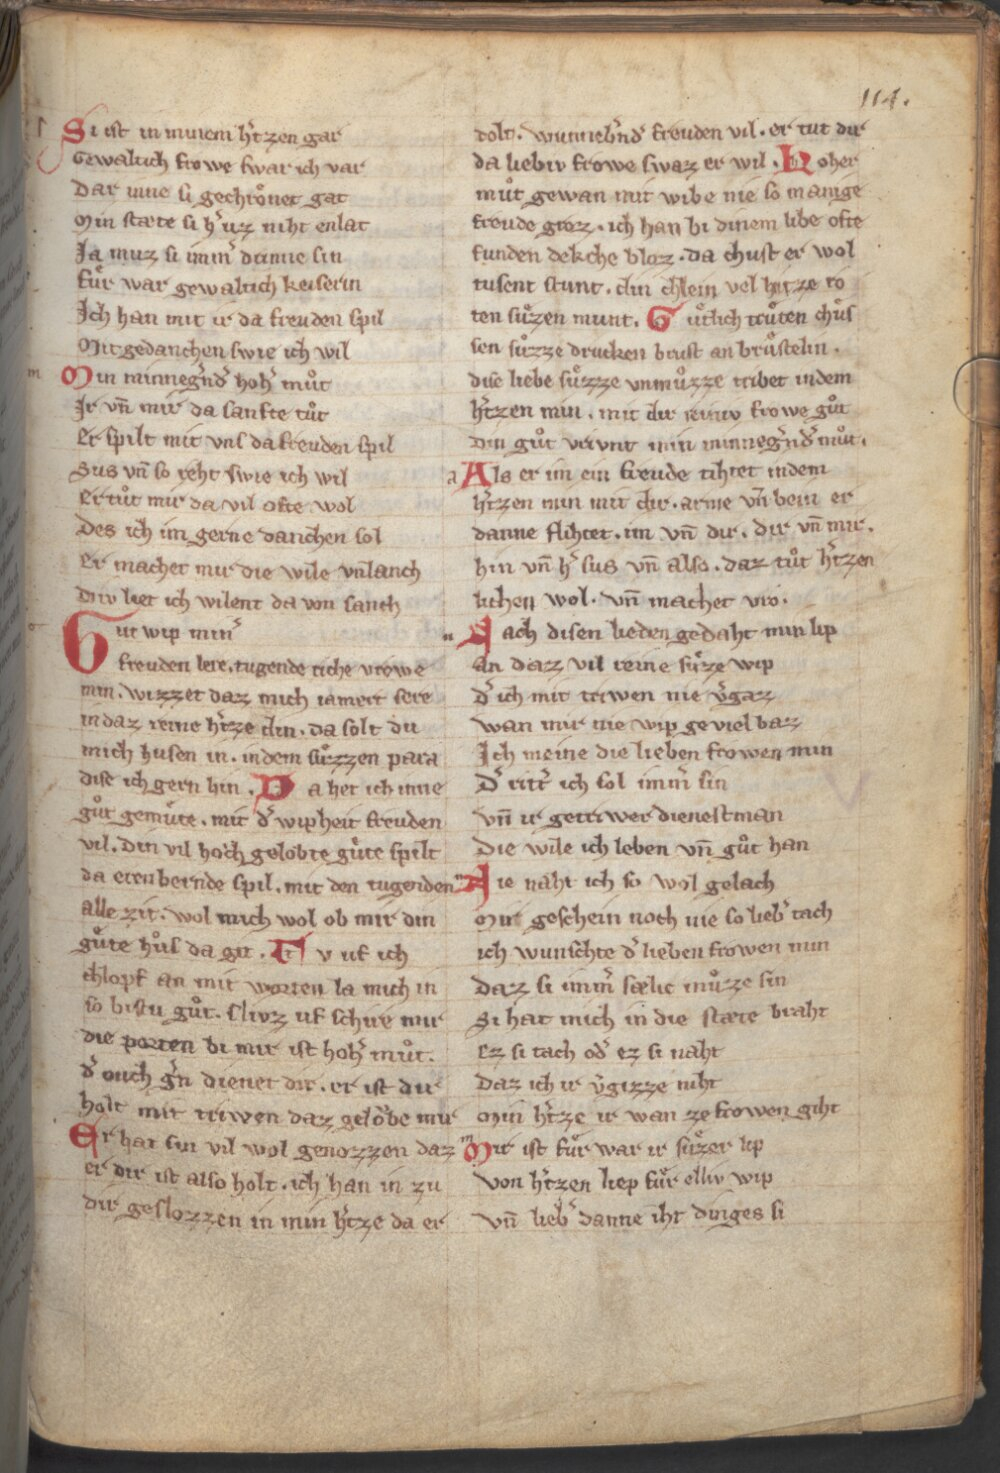 114.
Si ist in minem h̾tzen gar
Gewaltich frowe swar ich var
Dar inne si gechroͤnet gat
Min stæte si h̾ uz niht enlat
Ja muz si imm̾ drinne sin
Fuͤr war gewaltich keiserin
Ich han mit ir da freuden spil
Mit gedanchen swie ich wil
Min minneg̾nd̾ hoh̾ muͦt
Ir vn̄ mir da sanfte tuͦt
Er spilt mit vns da freuden spil
Sus vn̄ so reht swie ich wil
Er tuͦt mir da vil ofte wol
Des ich im gerne danchen sol
Er machet mir die wile vnlanch
Div liet ich wilent da von sanch
Gut wip min̾
freuden lere. tugende riche vrowe
min. wizzet daz mich iamert sere
in daz reine h̾tze din. da solt du
mich husen in. in dem suͤzzen para
dise ich gern bin. Da het ich inne
guͦt gemuͤte. mit d̾ wipheit freuden
vil. Din vil hoch gelobte guͤte spilt
da eren bernde spil. mit den tugenden
alle zit. wol mich wol ob mir din
guͤte huͦs da git. Tv uf ich
chlopf an mit worten la mich in
so bistu guͦt. Slivz uf schire mir
die porten bi mir ist hoh̾ muͦt.
d̾ ouch g̾n dienet dir. er ist dir
holt mit triwen daz geloͮbe mir
Er hat sin vil wol genozzen daz
er dir ist also holt. ich han in zu
dir geslozzen in min h̾tze da er
tolt. wunneb̾nd̾ freuden vil. er tut dir
da liebiv frowe swaz er wil. Hoher
muͦt gewan mit wibe nie so manige
freude groz. ich han bi dinem libe ofte
funden dekche bloz. da chust er wol
tusent stunt. din chlein vel hitze ro
ten suͤzen munt. Guͤtlich truͤten chus
sen suͤzze drucken brust an bruͤstelin.
dise liebe suͤzze vnmuͦzze tribet in dem
h̾tzen min. mit dir reiniv frowe guͦt
din guͦt vrivnt min minneg̾nd̾ muͦt.
Als er im ein freude tihtet in dem
h̾tzen min mit dir. arme vn̄ bein er
danne flihtet. im vn̄ dir. dir vn̄ mir.
hin vn̄ h̾ sus vn̄ also. daz tuͦt h̾tzen
lichen wol. vn̄ machet vro.
Nach disen lieden gedaht min lip
An daz vil reine suͤze wip
D̾ ich mit triwen nie v̾gaz
wan mir nie wip geviel baz
Ich meine die lieben frowen min
D̾ ritt̾ ich sol imm̾ sin
vn̄ ir getriwer dienestman
Die wile ich leben vn̄ guͦt han
Nie naht ich so wol gelach
Mir geschein noch nie so lieb̾ tach
ich wunschte d̾ lieben frowen min
Daz si imm̾ sælic muͤzze sin
Si hat mich in die stæte braht
Ez si tach od̾ ez si naht
Daz ich ir v̾gizze niht
Min h̾tze ir wan ze frowen giht
Mir ist fuͤr war ir suͤzer lip
Von h̾tzen liep fuͤr elliv wip
vn̄ lieb̾ danne iht dinges si